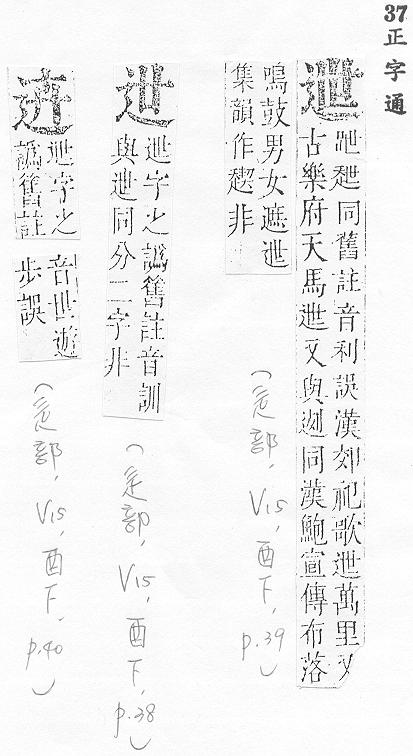 37 正字通
迣
跇同舊註音利誤漢郊祀歌迣萬里又
古樂府天馬迣又與迾同漢鮑宣傳布落
鳴鼓男女遮迣
集韻作非
(辵部, V15, 酉下, p.39)
迣字之譌舊註音訓
與迣同分二字非
(辵部, V15, 酉下, p.38)
迣字之
譌舊註
音世遊
步誤
(辵部, V15, 酉下, p.40)